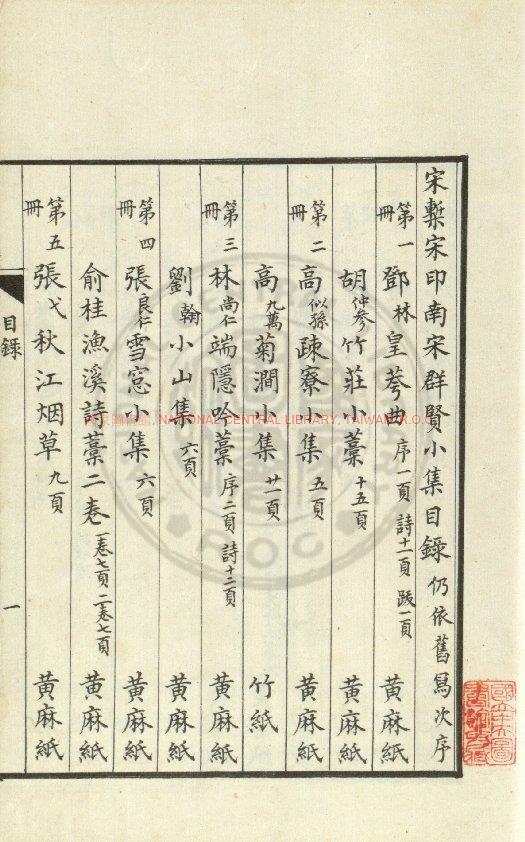 宋槧宋印南宋群賢小集目錄 仍依舊寫次序
第一冊 鄧林 皇荂曲 序一頁 詩十一頁 跋一頁 黃麻紙
胡仲參 竹莊小藁 十五頁 黃麻紙
第二冊 高似孫 疎寮小集 五頁 黃麻紙
高九萬 菊澗小集 廿一頁 竹紙
第三冊 林尚仁 端隱吟藁 序二頁 詩十二頁 黃麻紙
劉翰 小山集 六頁 黃麻紙
第四冊 張良仁 雪窓小集 六頁 黃麻紙
俞桂漁溪詩藁二卷 一卷七頁 二卷七頁 黃麻紙
第五冊 張弋秋江烟草 九頁 黃麻紙
目錄
一
國家圖書館, NATIONAL CENTRAL LIBRARY, TAIWAN, R.O.C